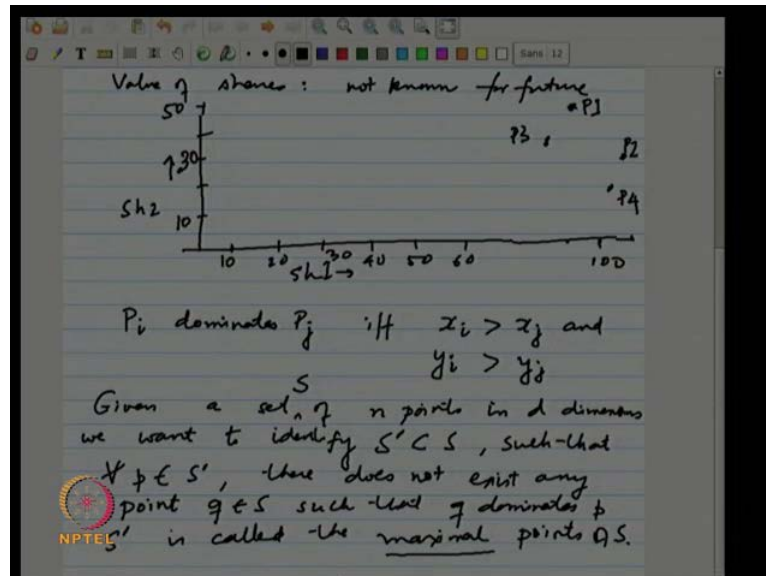 Sans 12
Value of shares : not known for future
50
P1
P3
30
P2
Sh2
P4
10
10 20 30 40 50 60 100
Sh1→
Pi dominates Pj iff xi > xj and
yi > yj
S
Given a set of n points in d dimensions
we want to identify S' ⊂ S, such that
∀ p ∈ S', there does not exist any
point q ∈ S such that q dominates p
S' is called the maximal points of S.
NPTEL